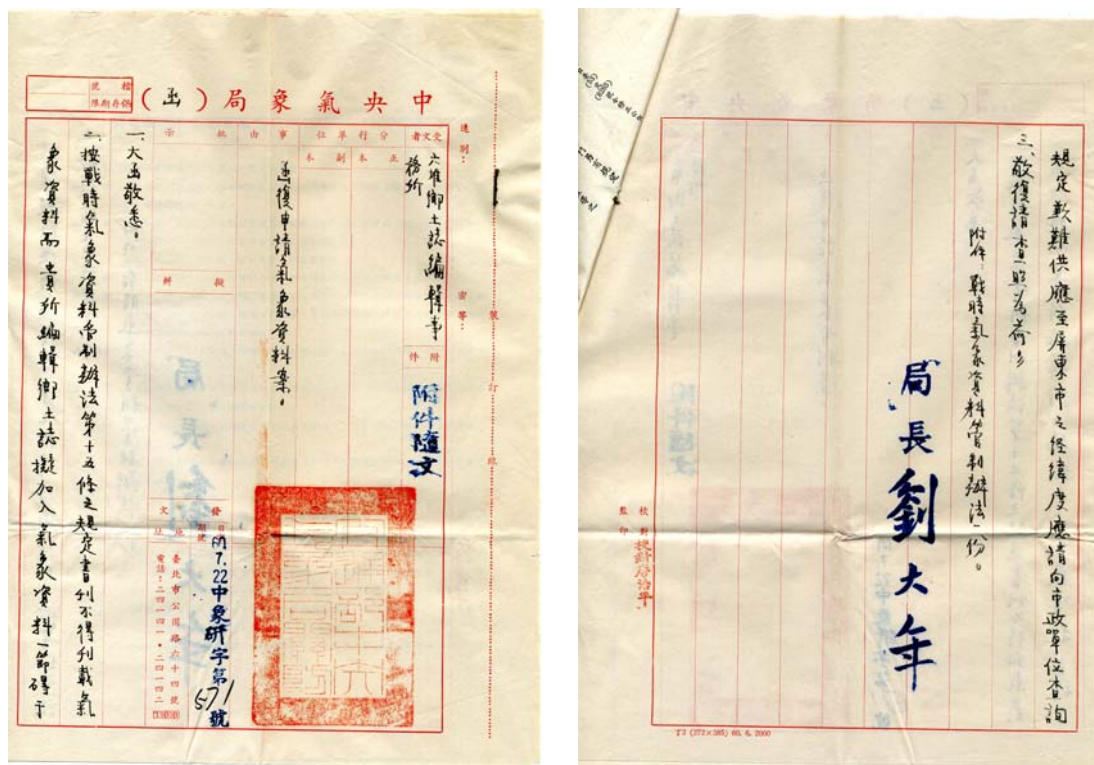 中央氣象局（函）
檔號
保存期限
速別：
密等：
裝訂線
受文者
六堆鄉土誌編輯事
務所
附件
附件隨文
分行單位
正本
副本
事由
函復申請氣象資料案。
批示
擬辦
發文
日期
字號
地址
7.22中象研字第
571號
臺北市公園路六十四號
電話：二四一四一・二四一四二
一、大函敬悉。
二、按戰時氣象資料管制辦法第十五條之規定書刊不得刊載氣
象資料而貴所編輯鄉土誌擬加入氣象資料一節礙于
規定歉難供應至屏東市之經緯度應請向市政單位查詢
三、敬復請查照為荷
附件：戰時氣象資料管制辦法一份。
局長劉大年
校對
監印
T2 (272×385) 60. 6. 2000